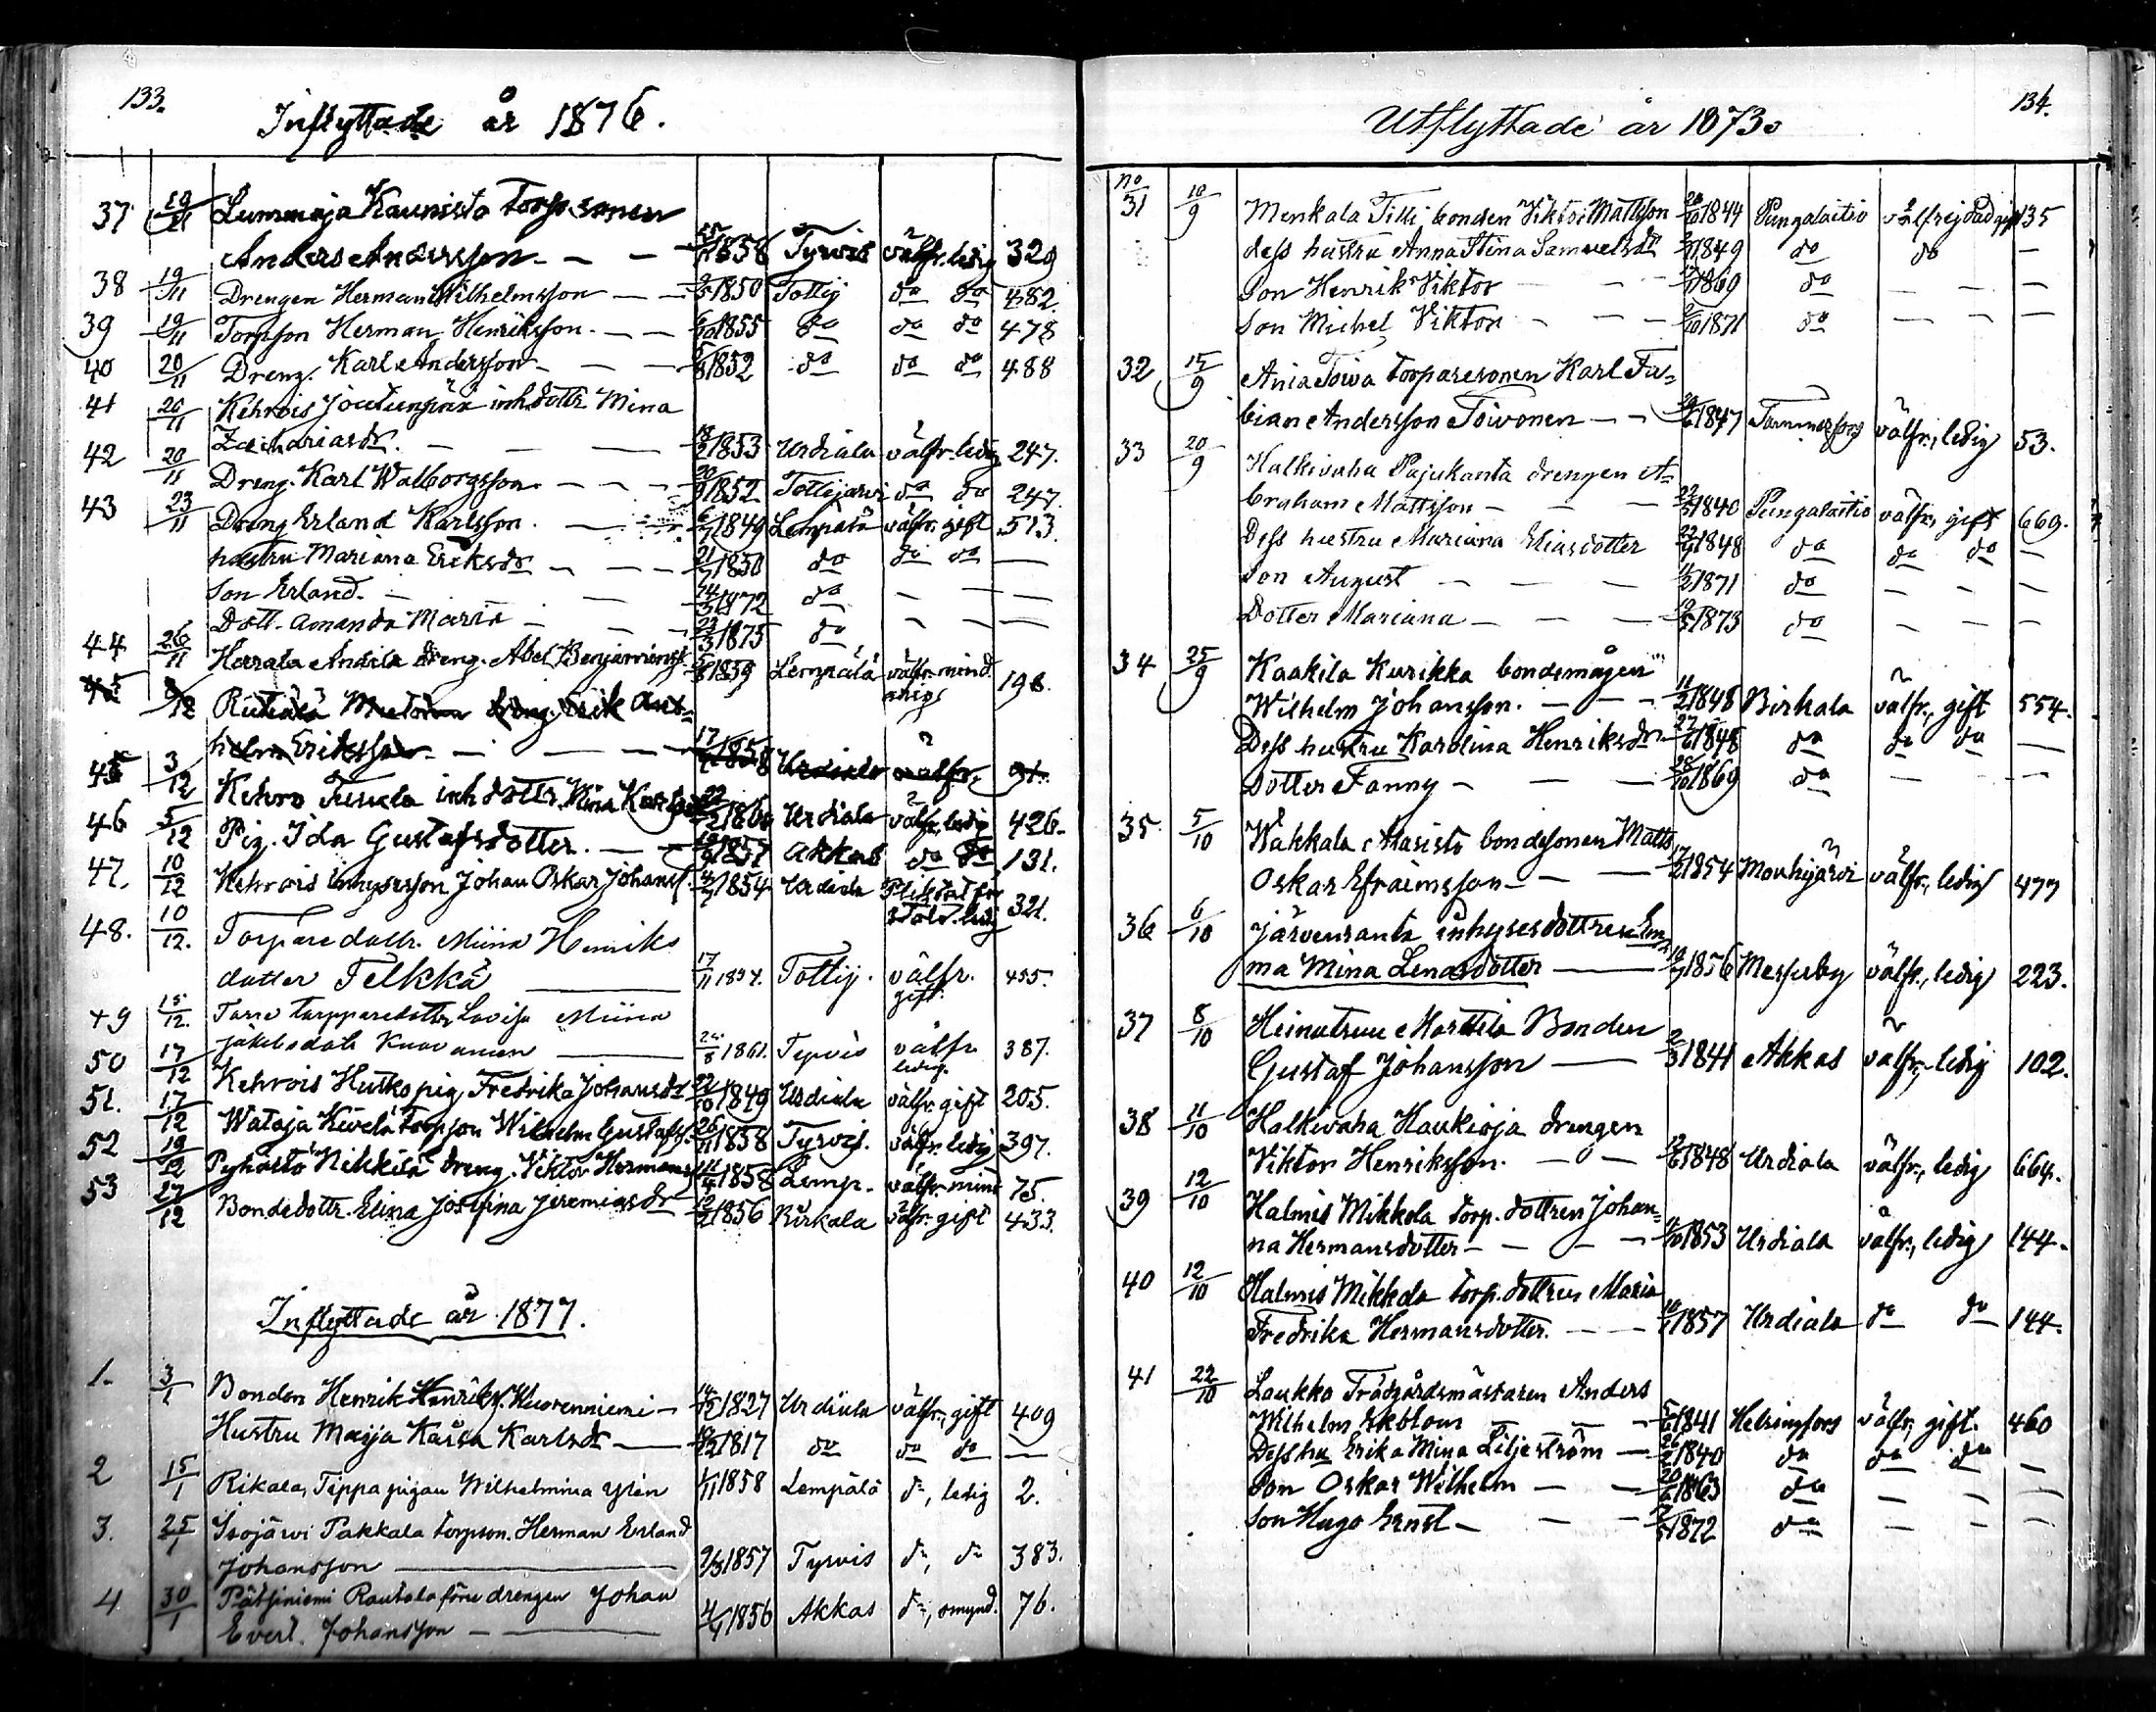 133.
Inflyttade år 1876.
37 19/11 Lummaja Kaunisto Torpsonen
Anders Andersson - - 1858 Tyrvis välfr. ledig 329
38 19/11 Drengen Herman Wilhelmsson - - 1850 Tottij do do 482.
39 19/11 Torpson Herman Henriksson. - - 1855 do do do 478
40 20/11 Dreng. Karl Andersson - - - 1852 do do do 488
41 20/11 Kehrois Joutunpää inh dottr Mina
Zachariasdr. - - - 1853 Urdiala välfr. ledig 247.
42 20/11 Dreng. Karl Walborgsson - - - 1852 Tottijärvi do do 247.
43 23/11 Dreng Erland Karlsson. - 1849 Lempälä välfr. gift 513.
hustru Mariana Eriksdr - - - 21/7 1850 do do do —
Son Erland. - - - 1872 do - - —
Dott. Amanda Maria - - - 23/3 1875 do - - —
44 26/11 Herrala Anzila dreng. Abel Benjaminss. 1859 Lempälä välfr. mind 198.
årigs
12 helm Eriksson - - 17 1858 Urdiala välfr. 91.
45 3/12 Kehro Tusula inh dottr. Mina Karlsdr 1860 Urdiala välfr. ledig 426.
46 5/12 Pig. Ida Gustafsdotter. - - 1857 Akkas do do 131.
47. 10/12 Kehrois inhysesson Johan Oskar Johanss. 1854 Urdiala 321.
48. 10/12. Torpare dottr. Miina Henriks
dotter Telkkä — 17/11 1854. Tottij. välfr. 455.
gift.
49 15/12. Tarre torpparedottr Lovisa Miina
Jakobsdotr Kuovanen — 24/8 1861. Tyrvis välfr. 387.
ledig.
50 17/12 Kehrois Hutko pig. Fredrika Johansdr 22/10 1849 Urdiala välfr. gift 205.
51. 17/12 Wataja Kivelä torpson Wilhelm Gustafss. 26/11 1858 Tyrvis. välfr. ledig 397.
52 19/12 Pyhästö Nikkilä dreng. Viktor Hermanss. 11/4 1858 Lemp. välfr. mind 75.
53 27/12 Bondedottr. Elina Josefina Jeremiasdr 12/2 1856 Birkala välfr. gift 433.
Inflyttade år 1877.
1. 3/1 Bonden Henrik Henrikss. Kuorenniemi - 1827 Urdiala välfr., gift 409
Hustru Maija Kaisa Karlsdr — 1817 do do do —
2 15/1 Rikala, Tippa pigan Wilhelmina Ylén 1/11 1858 Lempälä do, ledig 2.
3. 25/1 Isojärvi Pakkala torpson. Herman Erland
Johansson — 2/3 1857 Tyrvis do, do 383.
4 30/1 Pätsiniemi Rautala förre drengen Johan
Evert. Johansson - — 4/4 1856 Akkas do, omynd. 76.
134.
Utflyttade år 1873.
no
31 10/9 Menkala Tilli bonden Viktor Mattsson 1844 Pungalaitio 135
dess hustru Anna Stina Samuelsdr 1849 do do —
Son Henrik Viktor - - 1869 do - - —
Son Michel Viktor - - - 1871 do - - —
32 15/9 Ania Toiva torparesonen Karl Fa=
bian Andersson Toivonen - - 1847 Tammerfors välfr., ledig 53.
33 20/9 Halkivaha Pajukanta drengen A=
braham Mattsson - - - 22/5 1840 Pungalaitio välfr., gift 669.
Dess hustru Mariana Eliasdotter 1848 do do do —
Son August - - - 11/2 1871 do - - —
Dotter Mariana - - - 1873 do - - —
34 25/9 Kaakila Kurikka bondemågen
Wilhelm Johansson. - - - 11/2 1848 Birkala välfr., gift 554.
Dess hustru Karolina Henriksdr - 27/6 1848 do do do —
Dotter Fanny - - - 28/10 1869 do - - —
35 5/10 Wakkala Alasisto bondesonen Matts
Oskar Efraimsson - - - 17/2 1854 Mouhijärvi välfr., ledig 477
36 6/10 Järvensanta inhysesdottren Em=
ma Mina Lenasdotter — 1856 Messuby välfr., ledig 223.
37 8/10 Heinutruu Marttila Bonden
Gustaf Johansson — 2/3 1841 Akkas välfr., ledig 102.
38 11/10 Halkivaha Haukioja drengen
Viktor Henriksson. - - - 12/6 1848 Urdiala välfr., ledig 664.
39 12/10 Halmis Mikkola torp. dottren Johan=
na Hermansdotter - - - - 1853 Urdiala välfr., ledig 144.
40 12/10 Halmis Mikkola torp. dottren Maria
Fredrika Hermansdotter. - - 1857 Urdiala do do 144.
41 22/10 Laukko Trädgårdsmästaren Anders
Wilhelm Ekblom - - - 1841 Helsingfors välfr., gift. 460
Dess hu Erika Mina Liljeström - 26/2 1840 do do do —
Son Oskar Wilhelm - - - 20/6 1863 do - - —
Son Hugo Ernst - - - 1872 do - - —